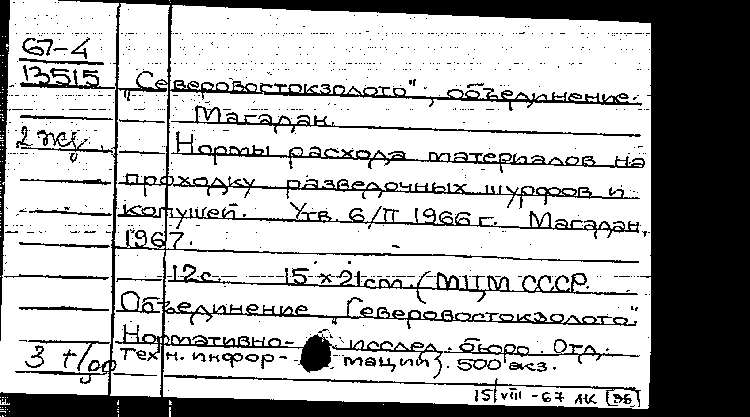 67-4
13515
"Северовостокзолото", объединение.
Магадан.
2 экз.
Нормы расхода материалов на
проходку разведочных шурфов и
копушей. Утв. 6/II 1966 г. Магадан,
1967.
12 с. 15 x 21 cm. (МЦМ СССР.
Объединение "Северовостокзолото".
Нормативно- исслед. бюро. Отд.
техн. инфор- мации). 500 экз.
15/VIII-67 ЛК [36]